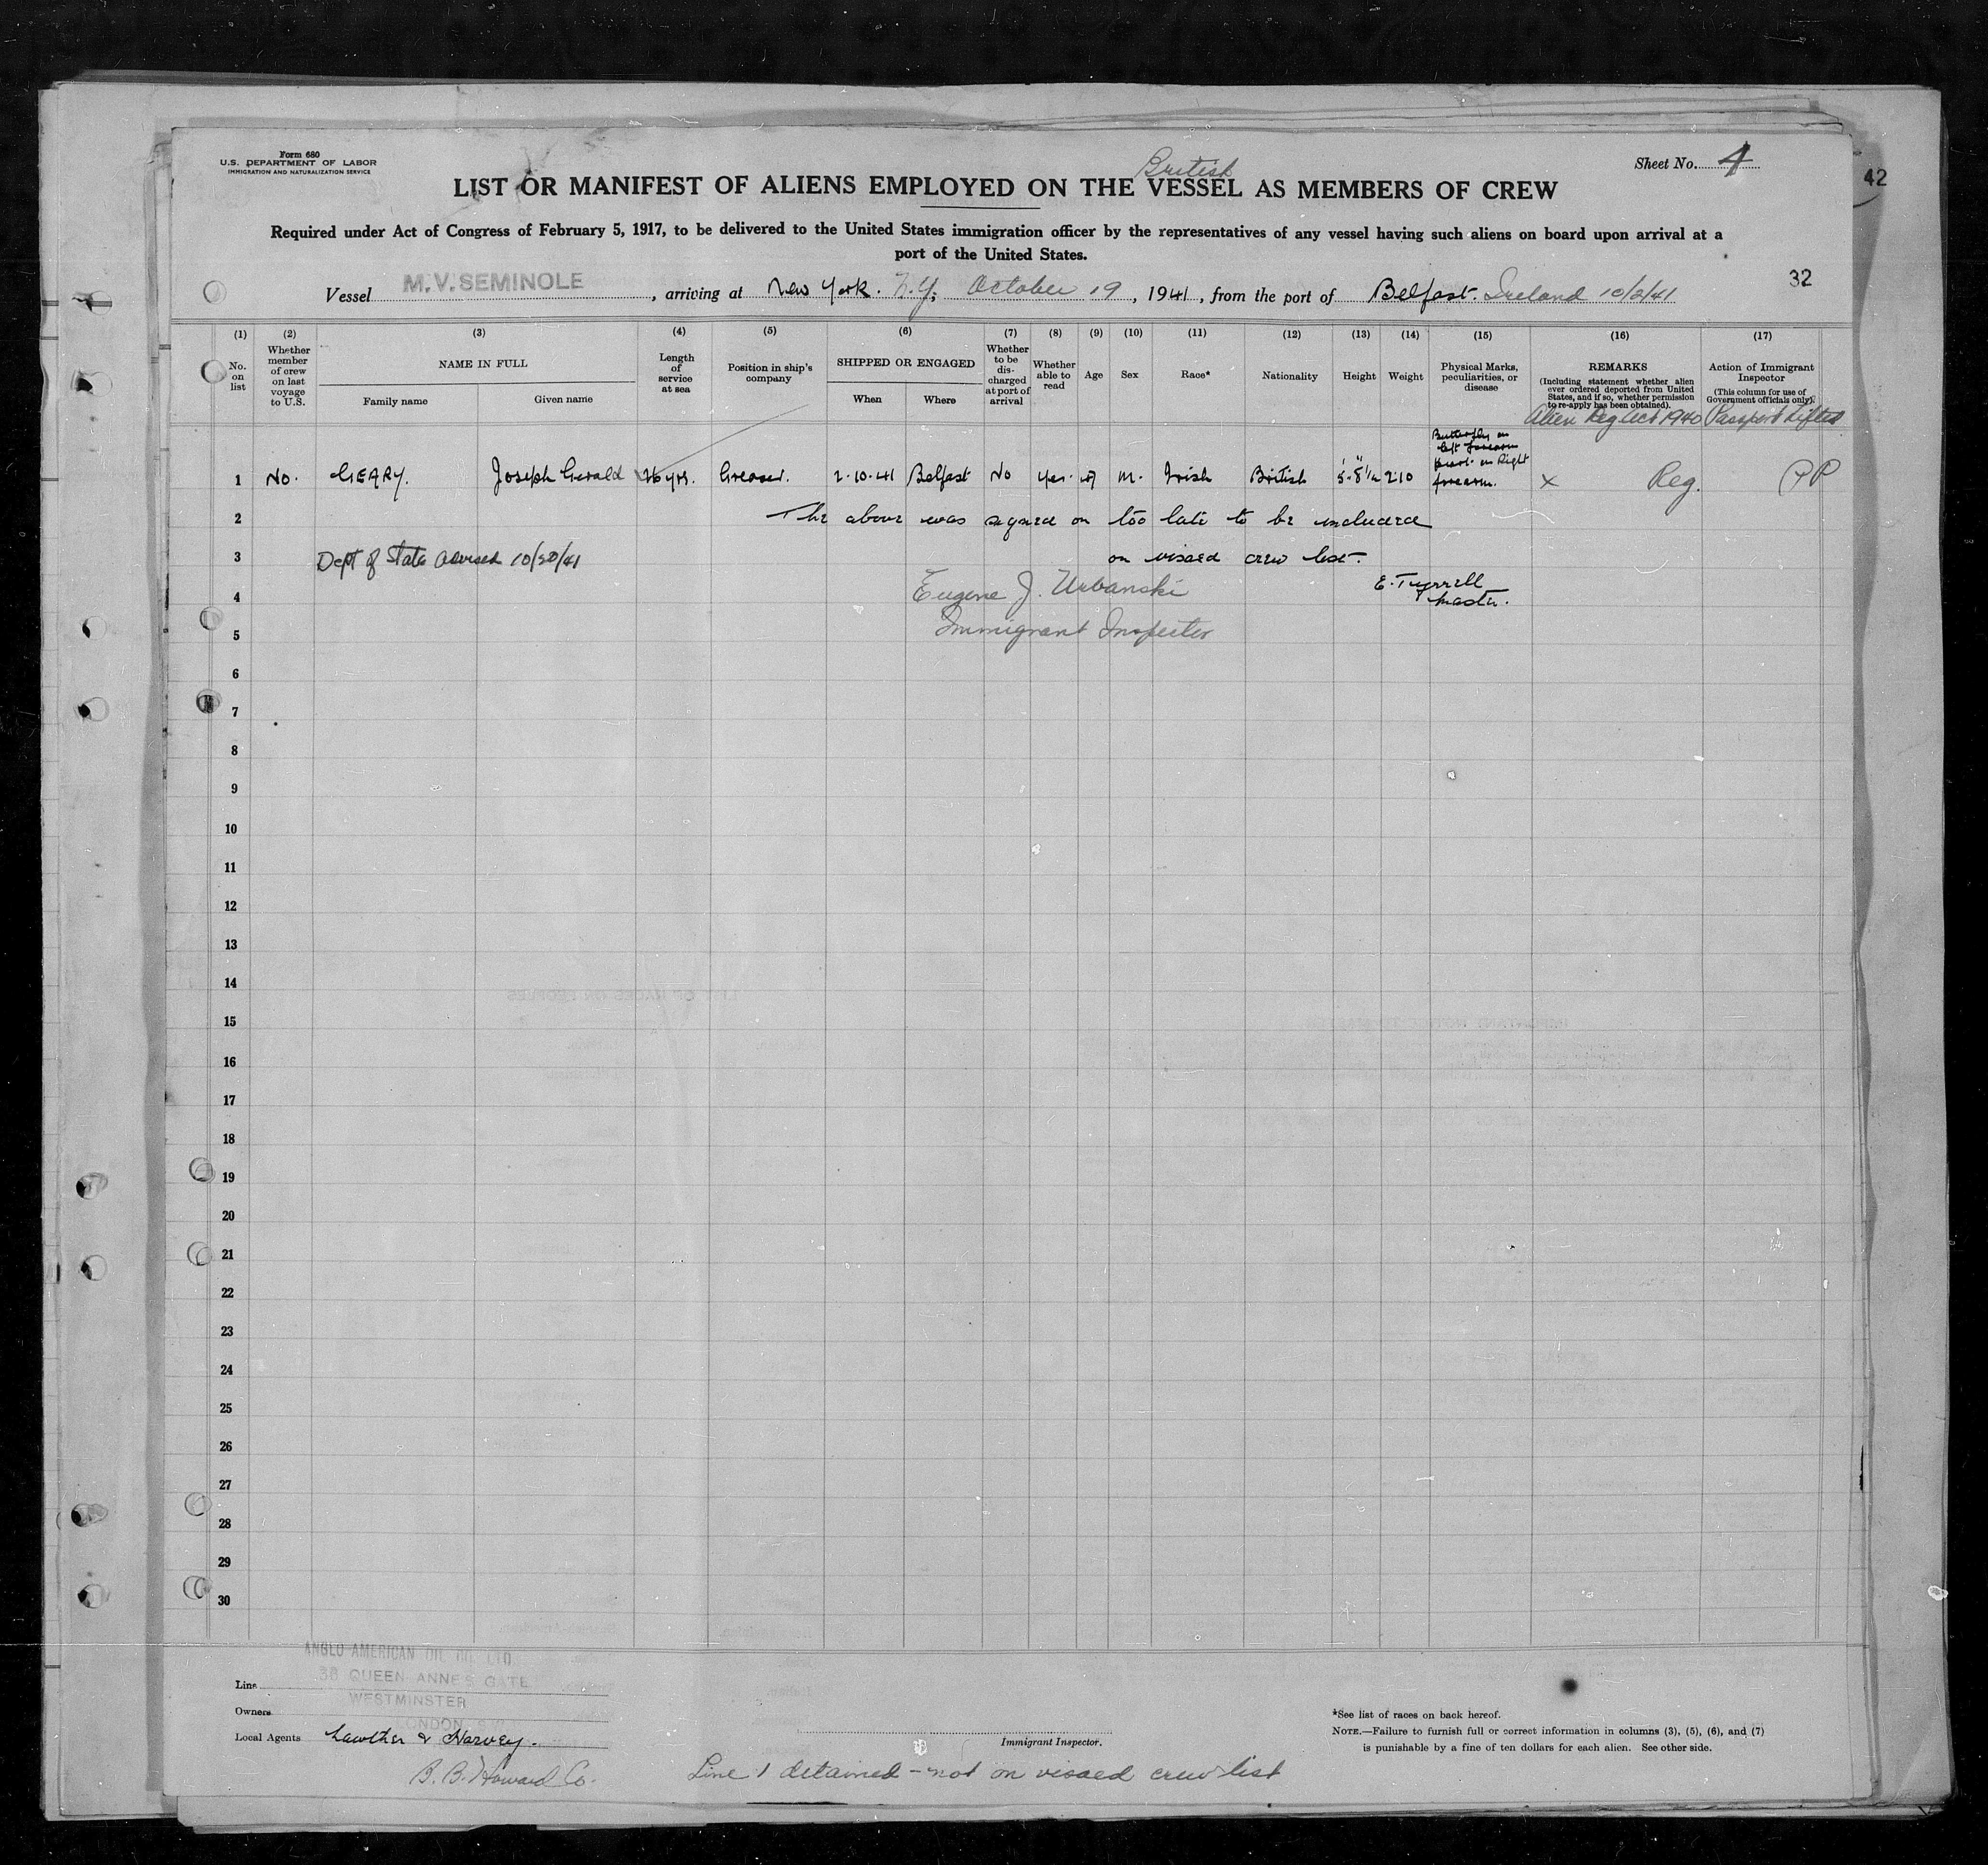 Form 680
U.S. DEPARTMENT OF LABOR
IMMIGRATION AND NATURALIZATION SERVICE
British
Sheet No. 4
42
LIST OR MANIFEST OF ALIENS EMPLOYED ON THE VESSEL AS MEMBERS OF CREW
Required under Act of Congress of February 5, 1917, to be delivered to the United States immigration officer by the representatives of any vessel having such aliens on board upon arrival at a
port of the United States.
32
Vessel M.V. SEMINOLE, arriving at New York. N.Y., October 19, 1941, from the port of Belfast. Ireland 10/2/41
(1) (2) (3) (4) (5) (6) (7) (8) (9) (10) (11) (12) (13) (14) (15) (16) (17)
No. on list
Whether member of crew on last voyage to U.S.
NAME IN FULL
Family name
Given name
Length of service at sea
Position in ship's company
SHIPPED OR ENGAGED
When
Where
Whether to be dis-charged at port of arrival
Whether able to read
Age
Sex
Race*
Nationality
Height
Weight
Physical Marks, peculiarities, or disease
REMARKS
(Including statement whether alien ever ordered deported from United States, and if so, whether permission to re-apply has been obtained).
Alien Reg Act 1940
Action of Immigrant Inspector
(This column for use of Government officials only).
Passport Lifted
Butterfly on
left forearm
on Right
forearm.
1 No. GEARY. Joseph Gerald yrs. Greaser. 2.10.41 Belfast No Yes. M. Irish British 5'-8"½ 210 x Reg. PP
2 The above was signed on too late to be included
3 Dept of State advised 10/20/41 on visaed crew list.
4 Eugene J. Urbanski E. Tyrrell
Master.
5 Immigrant Inspector
6
7
8
9
10
11
12
13
14
15
16
17
18
19
20
21
22
23
24
25
26
27
28
29
30
ANGLO AMERICAN OIL CO. LTD.
36 QUEEN ANNE'S GATE
WESTMINSTER
LONDON
Line
Owners
Local Agents Lawther & Harvey.
B. B. Howard Co.
Immigrant Inspector.
Line 1 detained - not on visaed crew list
*See list of races on back hereof.
NOTE.—Failure to furnish full or correct information in columns (3), (5), (6), and (7)
is punishable by a fine of ten dollars for each alien. See other side.